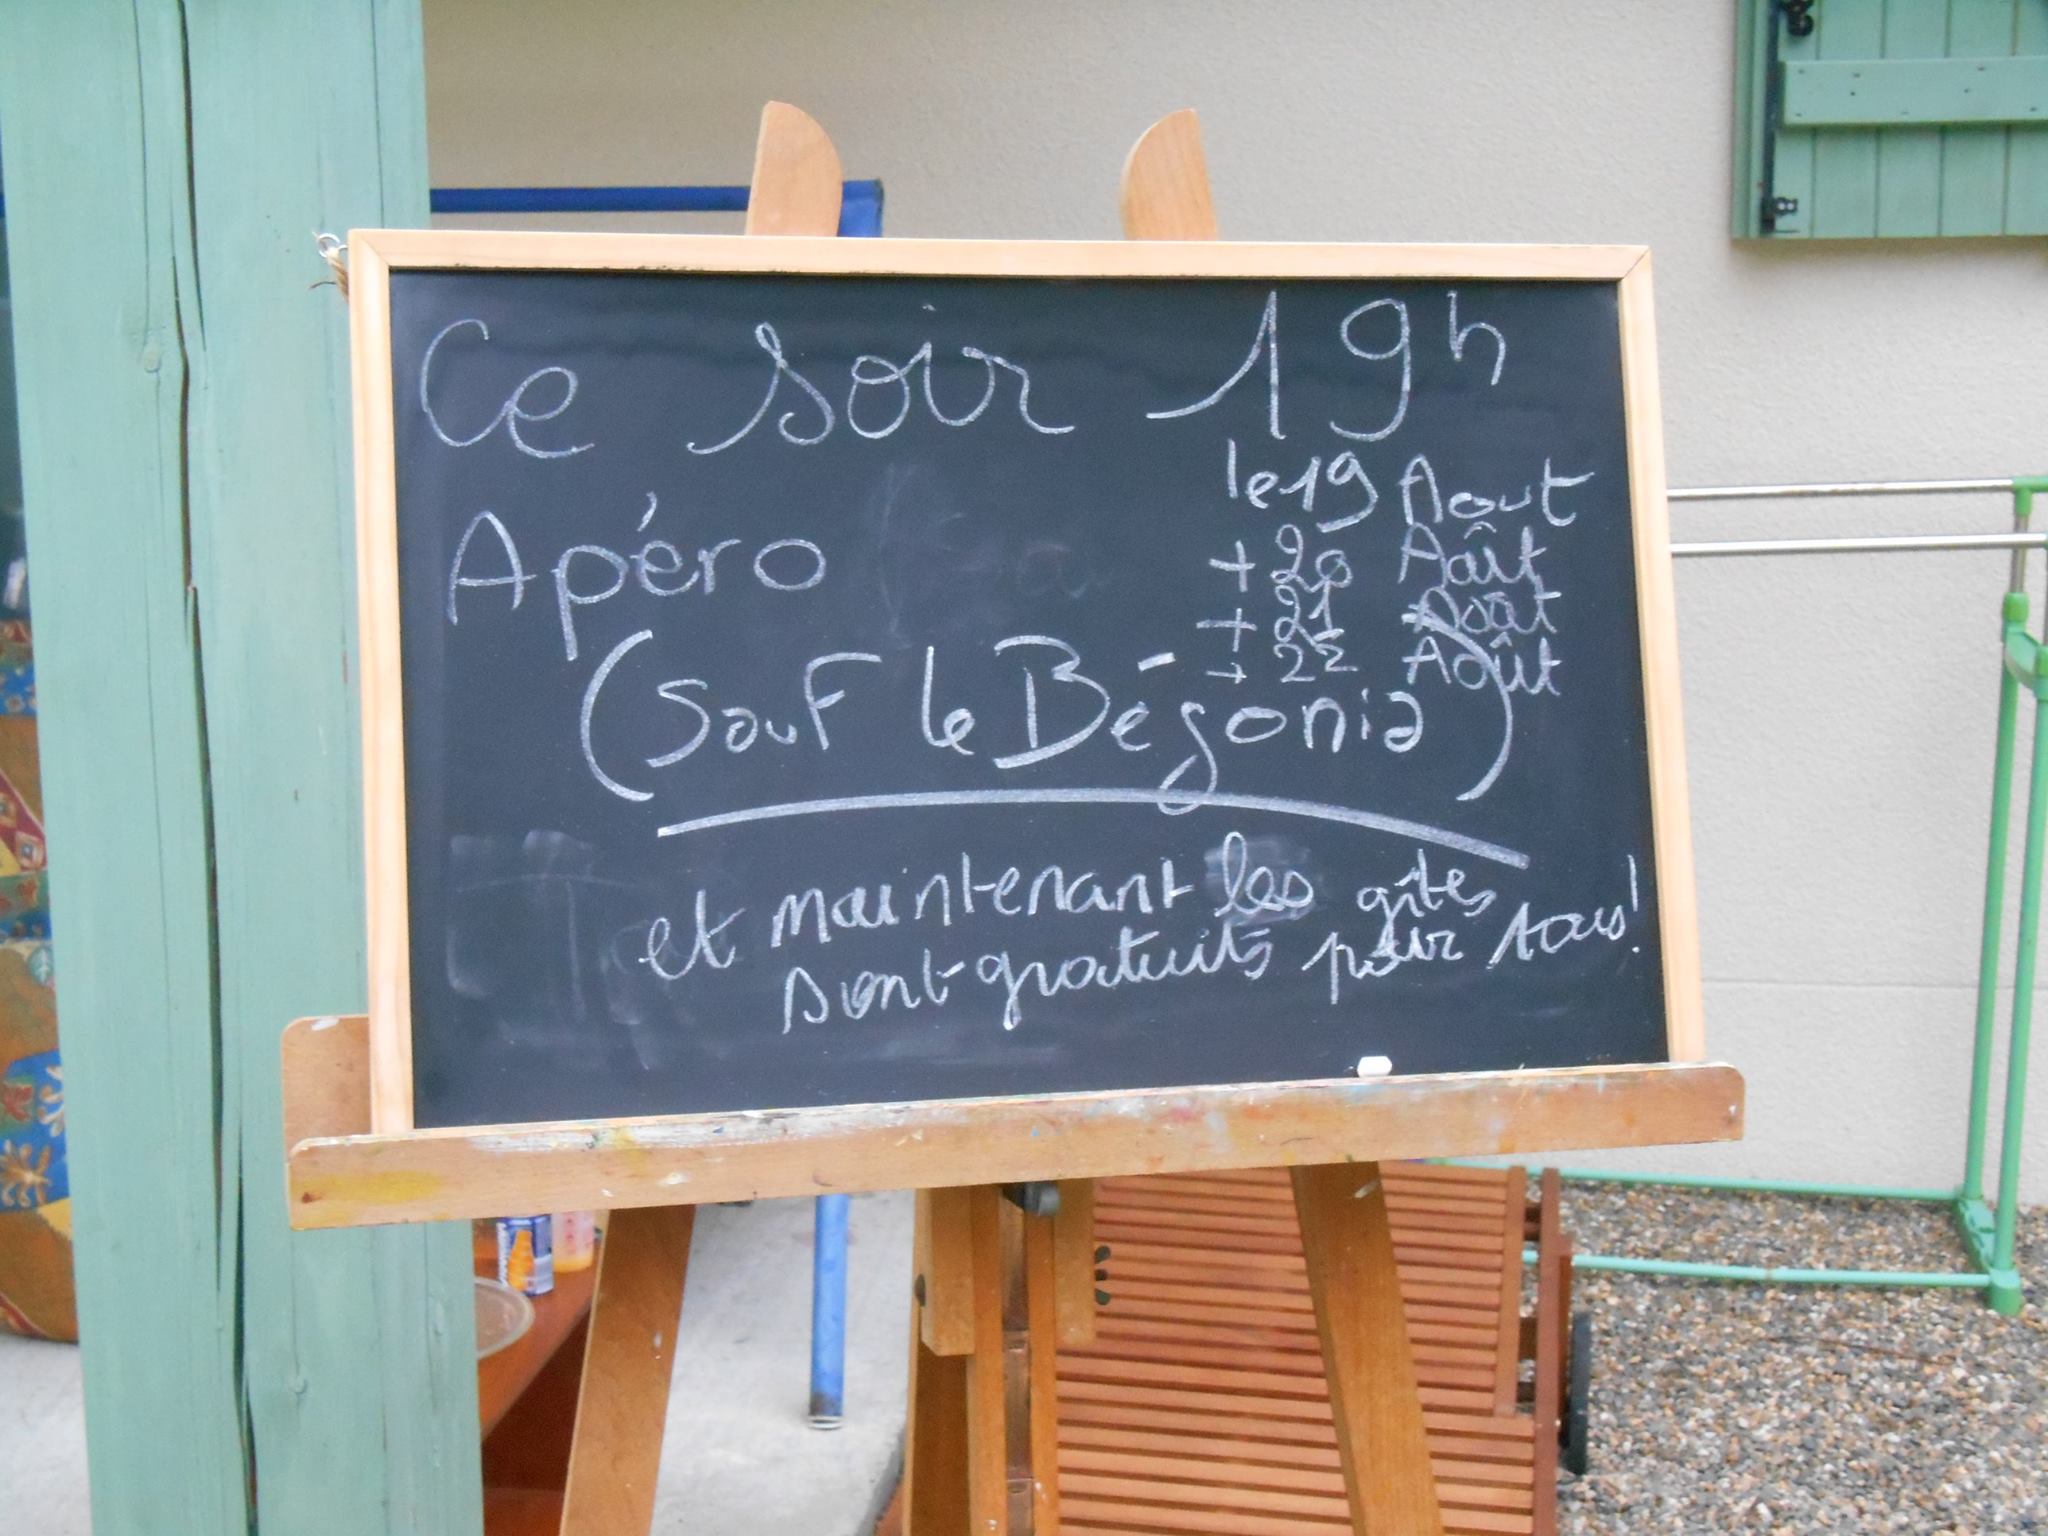 Ce soir 19h
le 19 Aout
Apéro
+ 20 Août
+ 21 Août
+ 22 Août
(sauf le Bégonia)
et maintenant les gîtes
sont gratuits pour tous!